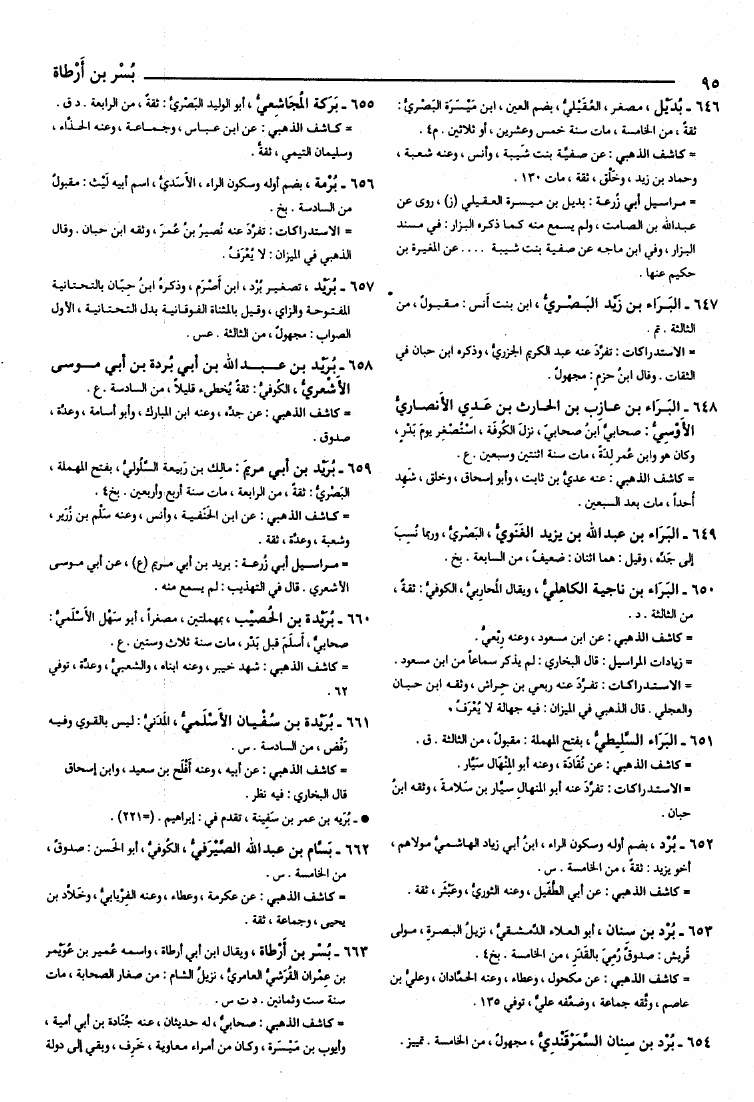 ٩٥
بُسْر بن أَرْطاة
٦٤٦ ـ بُدَيْل ، مصغر ، العُقَيْليُّ ، بضم العين ، ابن مَيْسَرة البَصْريُّ :
ثقةٌ ، من الخامسة ، مات سنة خمس وعشرين ، أو ثلاثين . م٤ .
= كاشف الذهبي : عن صفيَّة بنت شَيبة ، وأنس ، وعنه شعبة ،
وحماد بن زيد ، وخَلْق ، ثقة ، مات ١٣٠ .
= مراسيل أبي زُرعة : بديل بن ميسرة العقيلي (ز) ، روى عن
عبدالله بن الصامت ، ولم يسمع منه كما ذكره البزار : في مسند
البزار ، وفي ابن ماجه عن صفية بنت شيبة .... عن المغيرة بن
حكيم عنها .
٦٤٧ ـ البَرَاء بن زَيْد البَصْريُّ ، ابن بنت أنس : مقبولٌ ، من
الثالثة . تم .
= الاستدراكات : تفرَّد عنه عبد الكريم الجزريُّ ، وذكره ابن حبان في
الثقات . وقال ابنُ حزم : مجهولٌ .
٦٤٨ ـ البَرَاء بن عازِب بن الحارث بن عَدِي الأنصاريُّ
الأَوْسِيُّ : صحابيٌّ ابنُ صحابيّ ، نزلَ الكُوفَة ، اسْتُصْغِر يومَ بَدْرٍ ،
وكان هو وابن عُمر لِدَةً ، مات سنة اثنتين وسبعين . ع .
= كاشف الذهبي : عنه عديُّ بن ثابت ، وأبو إسحاق ، وخلق ، شَهِد
أُحداً ، مات بعد السبعين .
٦٤٩ ـ البَرَاء بن عبدالله بن يزيد الغَنَويُّ ، البَصْريُّ ، وربما نُسِبَ
إلى جَدِّه ، وقيل : هما اثنان : ضعيفٌ ، من السابعة . بخ .
٦٥٠ ـ البَرَاء بن ناجية الكاهليُّ ، ويقال المُحاربيُّ ، الكوفيُّ : ثقةٌ ،
من الثالثة . د .
= كاشف الذهبي : عن ابن مسعود ، وعنه رِبْعيُّ .
= زيادات المراسيل : قال البخاري : لم يذكر سماعاً من ابن مسعود .
= الاستدراكات : تفرَّدَ عنه ربعي بن حِراش ، وثقه ابن حبان
والعجلي . قال الذهبي في الميزان : فيه جهالة لا يُعْرَفُ .
٦٥١ ـ البَرَاء السَّلِيطيُّ ، بفتح المهملة : مقبولٌ ، من الثالثة . ق .
= كاشف الذهبي : عن نُقَادَة ، وعنه أبو المِنْهال سَيَّار .
= الاستدراكات : تفرَّدَ عنه أبو المنهال سيَّار بن سَلَامة ، وثقه ابنُ
حبان .
٦٥٢ ـ بُرْد ، بضم أوله وسكون الراء ، ابنُ أبي زياد الهاشميُّ مولاهم ،
أخو يزيد : ثقةٌ ، من الخامسة . س .
= كاشف الذهبي : عن أبي الطُّفَيل ، وعنه الثوريُّ ، وعَبْثَر ، ثقة .
٦٥٣ ـ بُرْد بن سنان ، أبو العلاء الدِّمشقيُّ ، نزيلُ البصرةِ ، مولى
قُريش : صدوقٌ رُمِيَ بالقَدَرِ ، من الخامسة . بخ٤ .
= كاشف الذهبي : عن مكحول ، وعطاء ، وعنه الحَمَّادان ، وعليُّ بن
عاصم ، وثَّقه جماعة ، وضعَّفه عليٌّ ، توفي ١٣٥ .
٦٥٤ ـ بُرْد بن سِنان السَّمَرْقَنْديُّ ، مجهولٌ ، من الخامسة . تمييز .
٦٥٥ ـ بَرَكة المُجَاشعيُّ ، أبو الوليد البَصْريُّ : ثقةٌ ، من الرابعة . د ق .
= كاشف الذهبي : عن ابن عباس ، وجماعة ، وعنه الحذَّاء ،
وسليمان التيمي ، ثقةٌ .
٦٥٦ ـ بُرْمة ، بضم أوله وسكون الراء ، الأسَديُّ ، اسم أبيه لَيْث : مقبولٌ
من السادسة . بخ .
= الاستدراكات : تفرَّد عنه نُصيرُ بنُ عُمَرَ ، وثقه ابن حبان . وقال
الذهبي في الميزان : لا يُعْرَفُ .
٦٥٧ ـ بُرَيْد ، تصغير بُرْد ، ابن أَصْرَم ، وذكرهُ ابنُ حِبَّان بالتحتانية
المفتوحة والزاي ، وقيل بالمثناة الفوقانية بدل التحتانية ، الأول
الصواب : مجهولٌ ، من الثالثة . عس .
٦٥٨ ـ بُرَيْد بن عبدالله بن أبي بُردة بن أبي موسى
الأشعريُّ ، الكُوفيُّ : ثقةٌ يُخطىء قليلاً ، من السادسة . ع .
= كاشف الذهبي : عن جدِّه ، وعنه ابن المبارك ، وأبو أسامة ، وعدة ،
صدوق .
٦٥٩ ـ بُرَيْد بن أبي مريمَ : مالك بن رَبيعة السَّلُوليُّ ، بفتح المهملة ،
البَصْريُّ : ثقةٌ ، من الرابعة ، مات سنة أربعٍ وأربعين . بخ٤ .
= كاشف الذهبي : عن ابن الحَنَفية ، وأنس ، وعنه سَلْم بن زُرَير ،
وشعبة ، وعدَّة ، ثقة .
= مراسيل أبي زُرعة : بريد بن أبي مريم (ع) ، عن أبي موسى
الأشعري . قال في التهذيب : لم يسمع منه .
٦٦٠ ـ بُرَيْدة بن الحُصَيْب ، بمهملتين ، مصغراً ، أبو سَهْل الأَسْلَميُّ :
صحابيٌّ ، أسلَمَ قبل بَدْرٍ ، مات سنة ثلاث وستين . ع .
= كاشف الذهبي : شهد خيبر ، وعنه ابناه ، والشعبيُّ ، وعدَّة ، توفي
٦٢ .
٦٦١ ـ بُرَيْدة بن سُفْيان الأَسْلَميُّ ، المَدَنيُّ : ليس بالقوي وفيه
رَفْض ، من السادسة . س .
= كاشف الذهبي : عن أبيه ، وعنه أَفْلَح بن سعيد ، وابن إسحاق
قال البخاري : فيه نظر .
● ـ بُرَيْه بن عمر بن سَفِينة ، تقدم في : إبراهيم . (=٢٢١) .
٦٦٢ ـ بَسَّام بن عبدالله الصَّيْرَفيُّ ، الكُوفيُّ ، أبو الحَسَن : صدوقٌ ،
من الخامسة . س .
= كاشف الذهبي : عن عكرمة ، وعطاء ، وعنه الفِرْيابيُّ ، وخَلَّاد بن
يحيى ، وجماعة ، ثقة .
٦٦٣ ـ بُسْر بن أَرْطَاة ، ويقال ابن أبي أرطاة ، واسمه عُمير بن عُوَيْمر
بن عِمْران القُرَشيُّ العامريُّ ، نزيلُ الشام : من صغار الصحابة ، مات
سنة ست وثمانين . د ت س .
= كاشف الذهبي : صحابيٌّ ، له حديثان ، عنه جُنَادة بن أبي أمية ،
وأيوب بن مَيْسَرة ، وكان من أمراء معاوية ، خَرِف ، وبقي إلى دولة